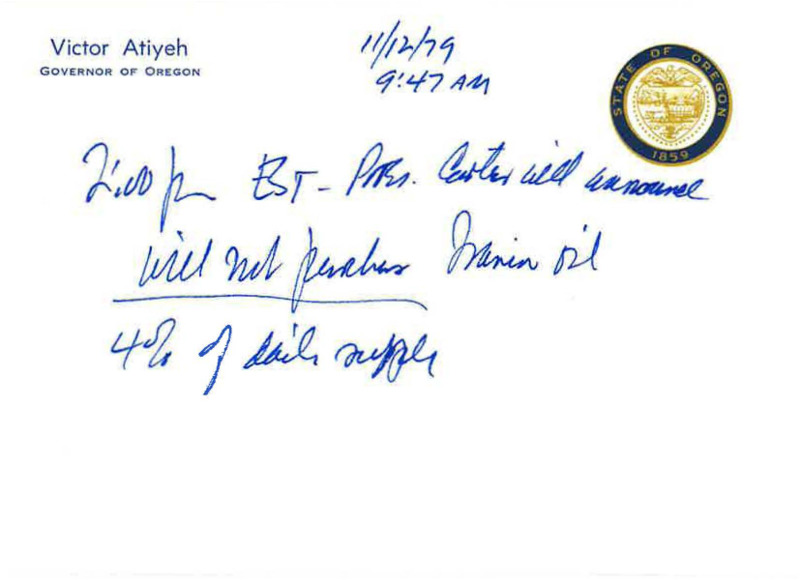 Victor Atiyeh
GOVERNOR OF OREGON
11/12/79
9:47 AM
STATE OF OREGON
1859
2:00 pm EST - Pres. Carter will announce
will not purchase Iranian oil
4% of daily supply